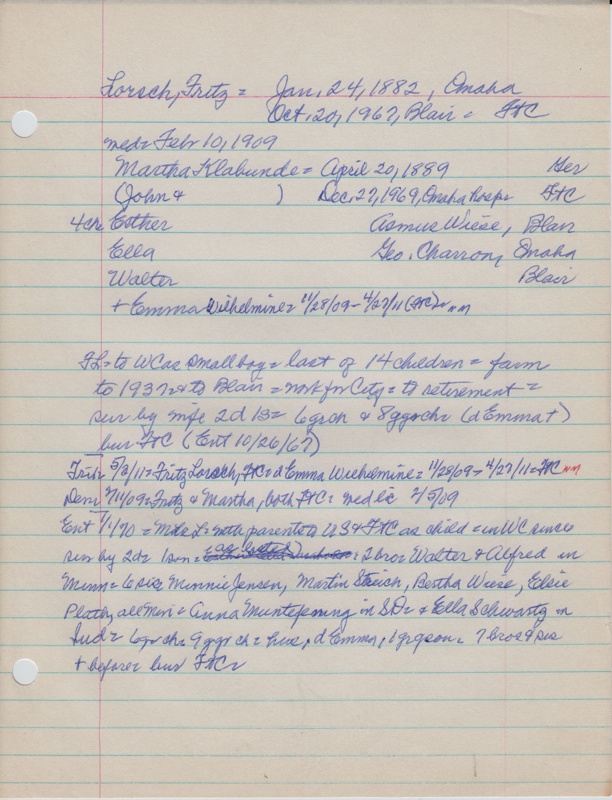 Lorsch, Fritz = Jan. 24, 1882, Omaha
Oct. 20, 1967, Blair = FtC
med = Febr 10, 1909
Martha Klabunde = April 20, 1889 Ger
(John & ) Dec. 27, 1969, Omaha hosp = FtC
4 ch = Esther Asmus Wiese, Blair
Ella Geo. Charron, Omaha
Walter Blair
+ Emma Wilhelmine = 11/28/09 - 4/27/11 (FtC) = nm
FL = to WC as small boy = last of 14 children = farm
to 1937 = & to Blair = work for City = to retirement =
sur by wife 2d 1s = 6 grch & 8 ggrch = (d Emma +)
bur FtC (Ent 10/26/67)
Trib 5/3/11 = Fritz Lorsch, FtC = d Emma Wilhelmine = 11/28/09 - 4/27/11 = FtC nm
Dem 2/11/09 = Fritz & Martha, both FtC = med lic 2/5/09
Ent 1/1/70 = Mrs L = with parents to US & FtC as child = in WC since
sur by 2d = 1 son = (as listed) = 2 bro = Walter & Alfred in
Minn = 6 sis = Minnie Jensen, Martin Streich, Bertha Wiese, Elsie
Plath, all Minn = Anna in SD = & Ella Schwartz in
Ind = 6 grch = 9 ggrch = hus, d Emma, 1 grgson = 7 bros & sis
+ before = bur FtC =